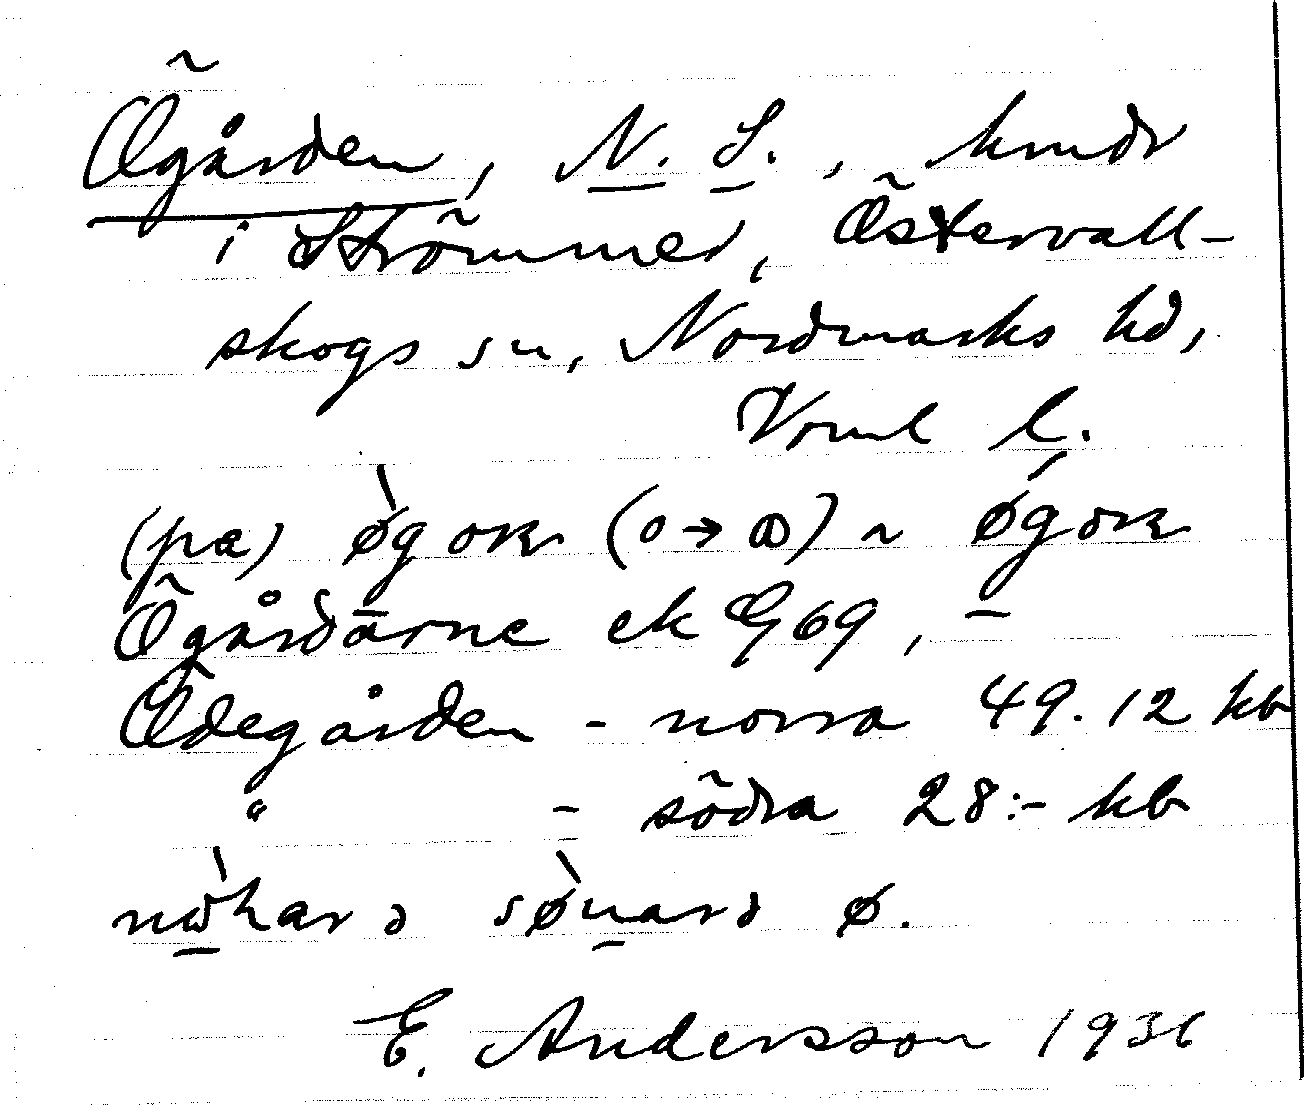 Ögården, N. S., hmdr
i Strömmer, Östervall-
skogs sn, Nordmarks hd,
Vrml l.
(pa) ø̀gok (o → ꝏ) ~ ǿgok
Ögårdarne ek G 69, –
Ödegården - norra 49.12 kb
" - södra 28:- kb
nǿhar ø.
E. Andersson 1936